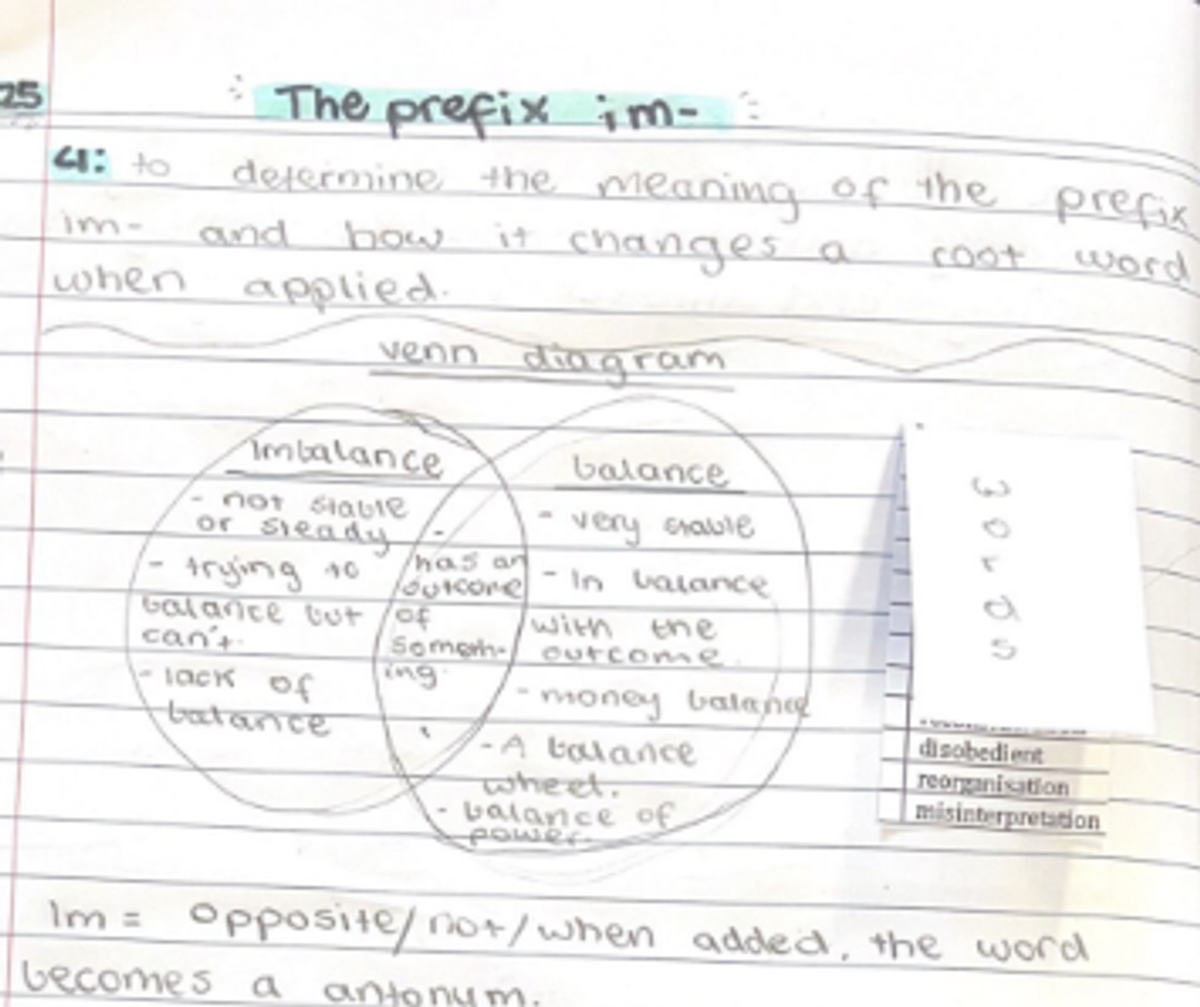 25
The prefix im-
LI: to determine the meaning of the prefix
im- and how it changes a root word
when applied.
venn diagram
Imbalance
- not stable
or steady
- trying to
balance but
can't.
- lack of
balance
-
has an
outcome
of
someth-
ing.
balance
- very stable
- In balance
with the
outcome.
- money balance
- A balance
wheel.
- balance of
power.
words
disobedient
reorganisation
misinterpretation
Im = opposite/not/when added, the word
becomes a antonum.